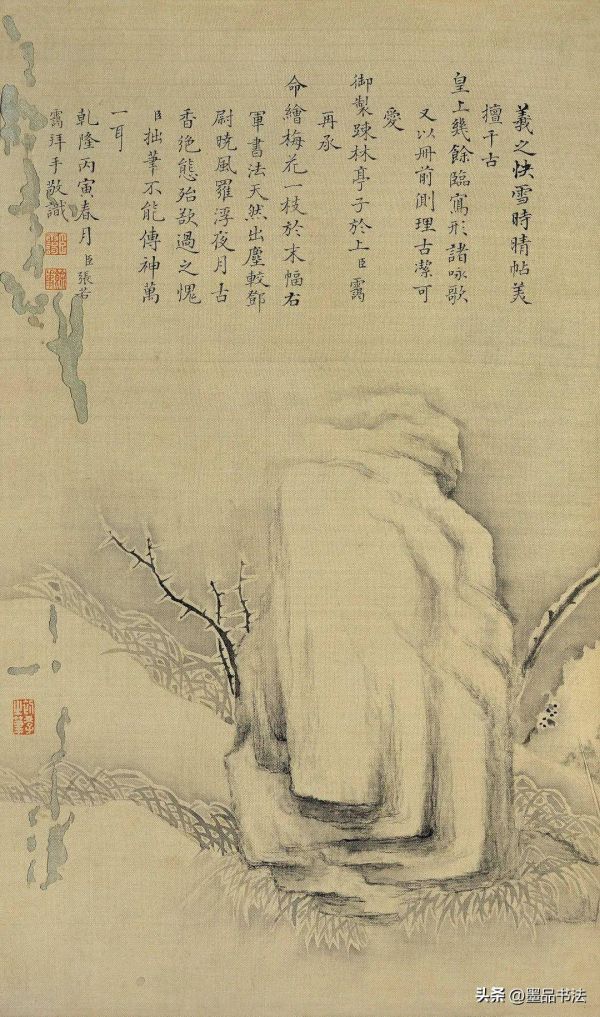 羲之快雪時晴帖美
擅千古
皇上幾餘臨寫形諸咏歌
又以册前側理古潔可
愛
御製疎林亭子於上臣靄
再承
命繪梅花一枝於末幅右
軍書法天然出塵較鄧
尉晓風羅浮夜月古
香絶態殆欲過之愧
臣拙筆不能傳神萬
一耳
乾隆丙寅春月臣張若
靄拜手敬識
头条@墨品书法